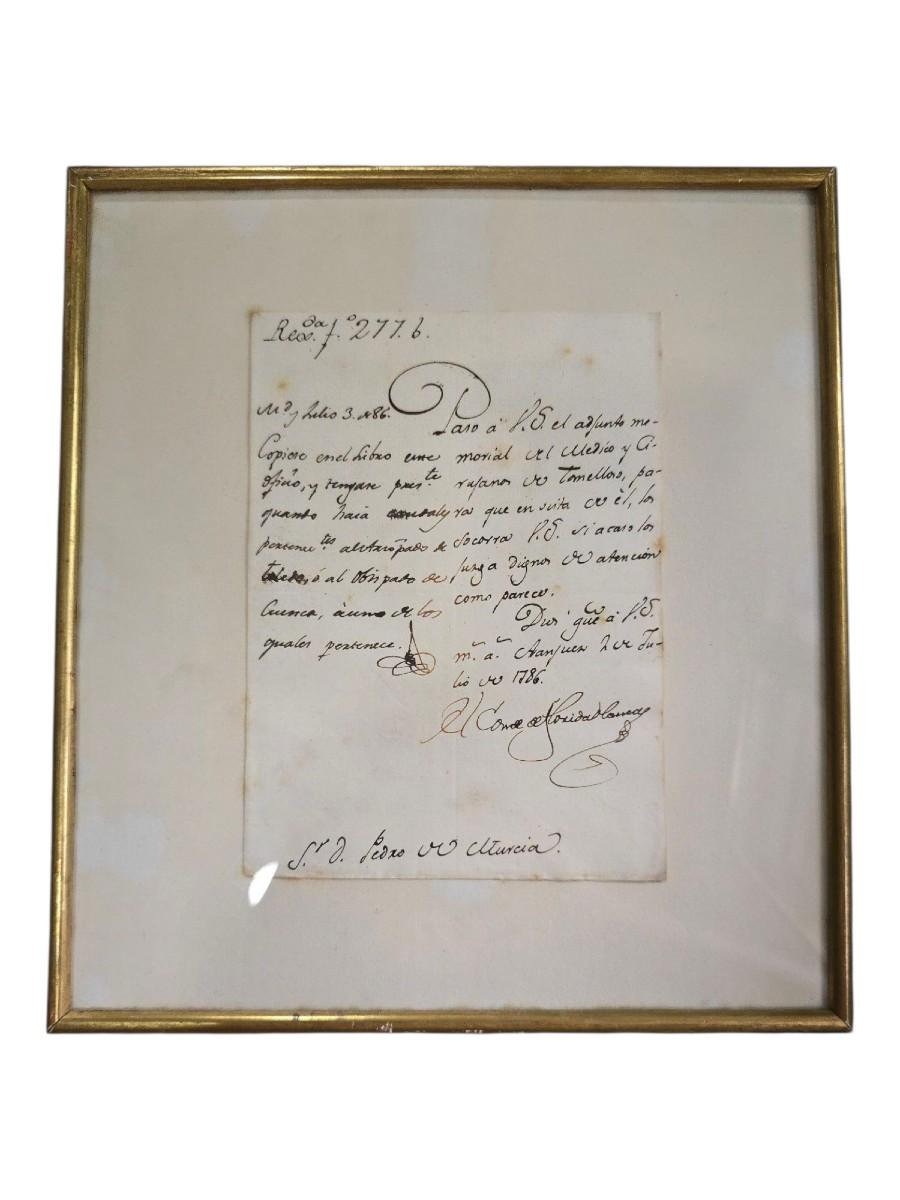 Reg.da f.o 277. b.
M.d y Julio 3. de 86.
Copiese en el Libro este
oficio, y tengase pres.te
quanto haia
pertenec.tes al Arzobpado de
Toledo, ó al Obispado de
Cuenca, à uno de los
quales pertenece.
Paso à V.S. el adjunto me-
morial del Medico y Ci-
rujanos de Tomelloso, pa-
ra que en vista de èl, los
socorra V.S. si acaso los
juzga dignos de atencion
como parece.
Dios gue à V.S.
m.s a.s Aranjuez 2 de Ju-
lio de 1786.
El Conde de Floridablanca
S.r D. Pedro de Murcia.